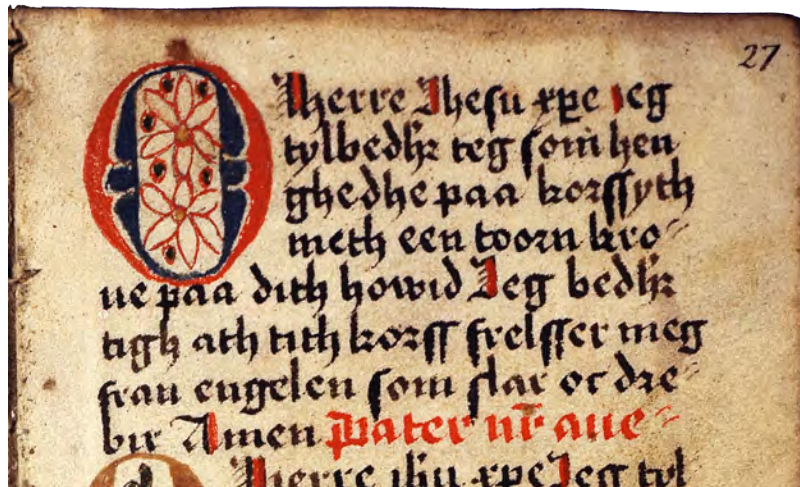 27
O Jherre Jhesu xpe jeg
tylbedhr teg som hen
ghedhe paa korssyth
meth een toorn kro⸗
ne paa dith howid Jeg bedhr
tigh ath tith korss frelsser meg
frau engelen som slar oc dre⸗
bir Amen Pater nr aue⸗
Jherre ihu xpe Jeg tyl